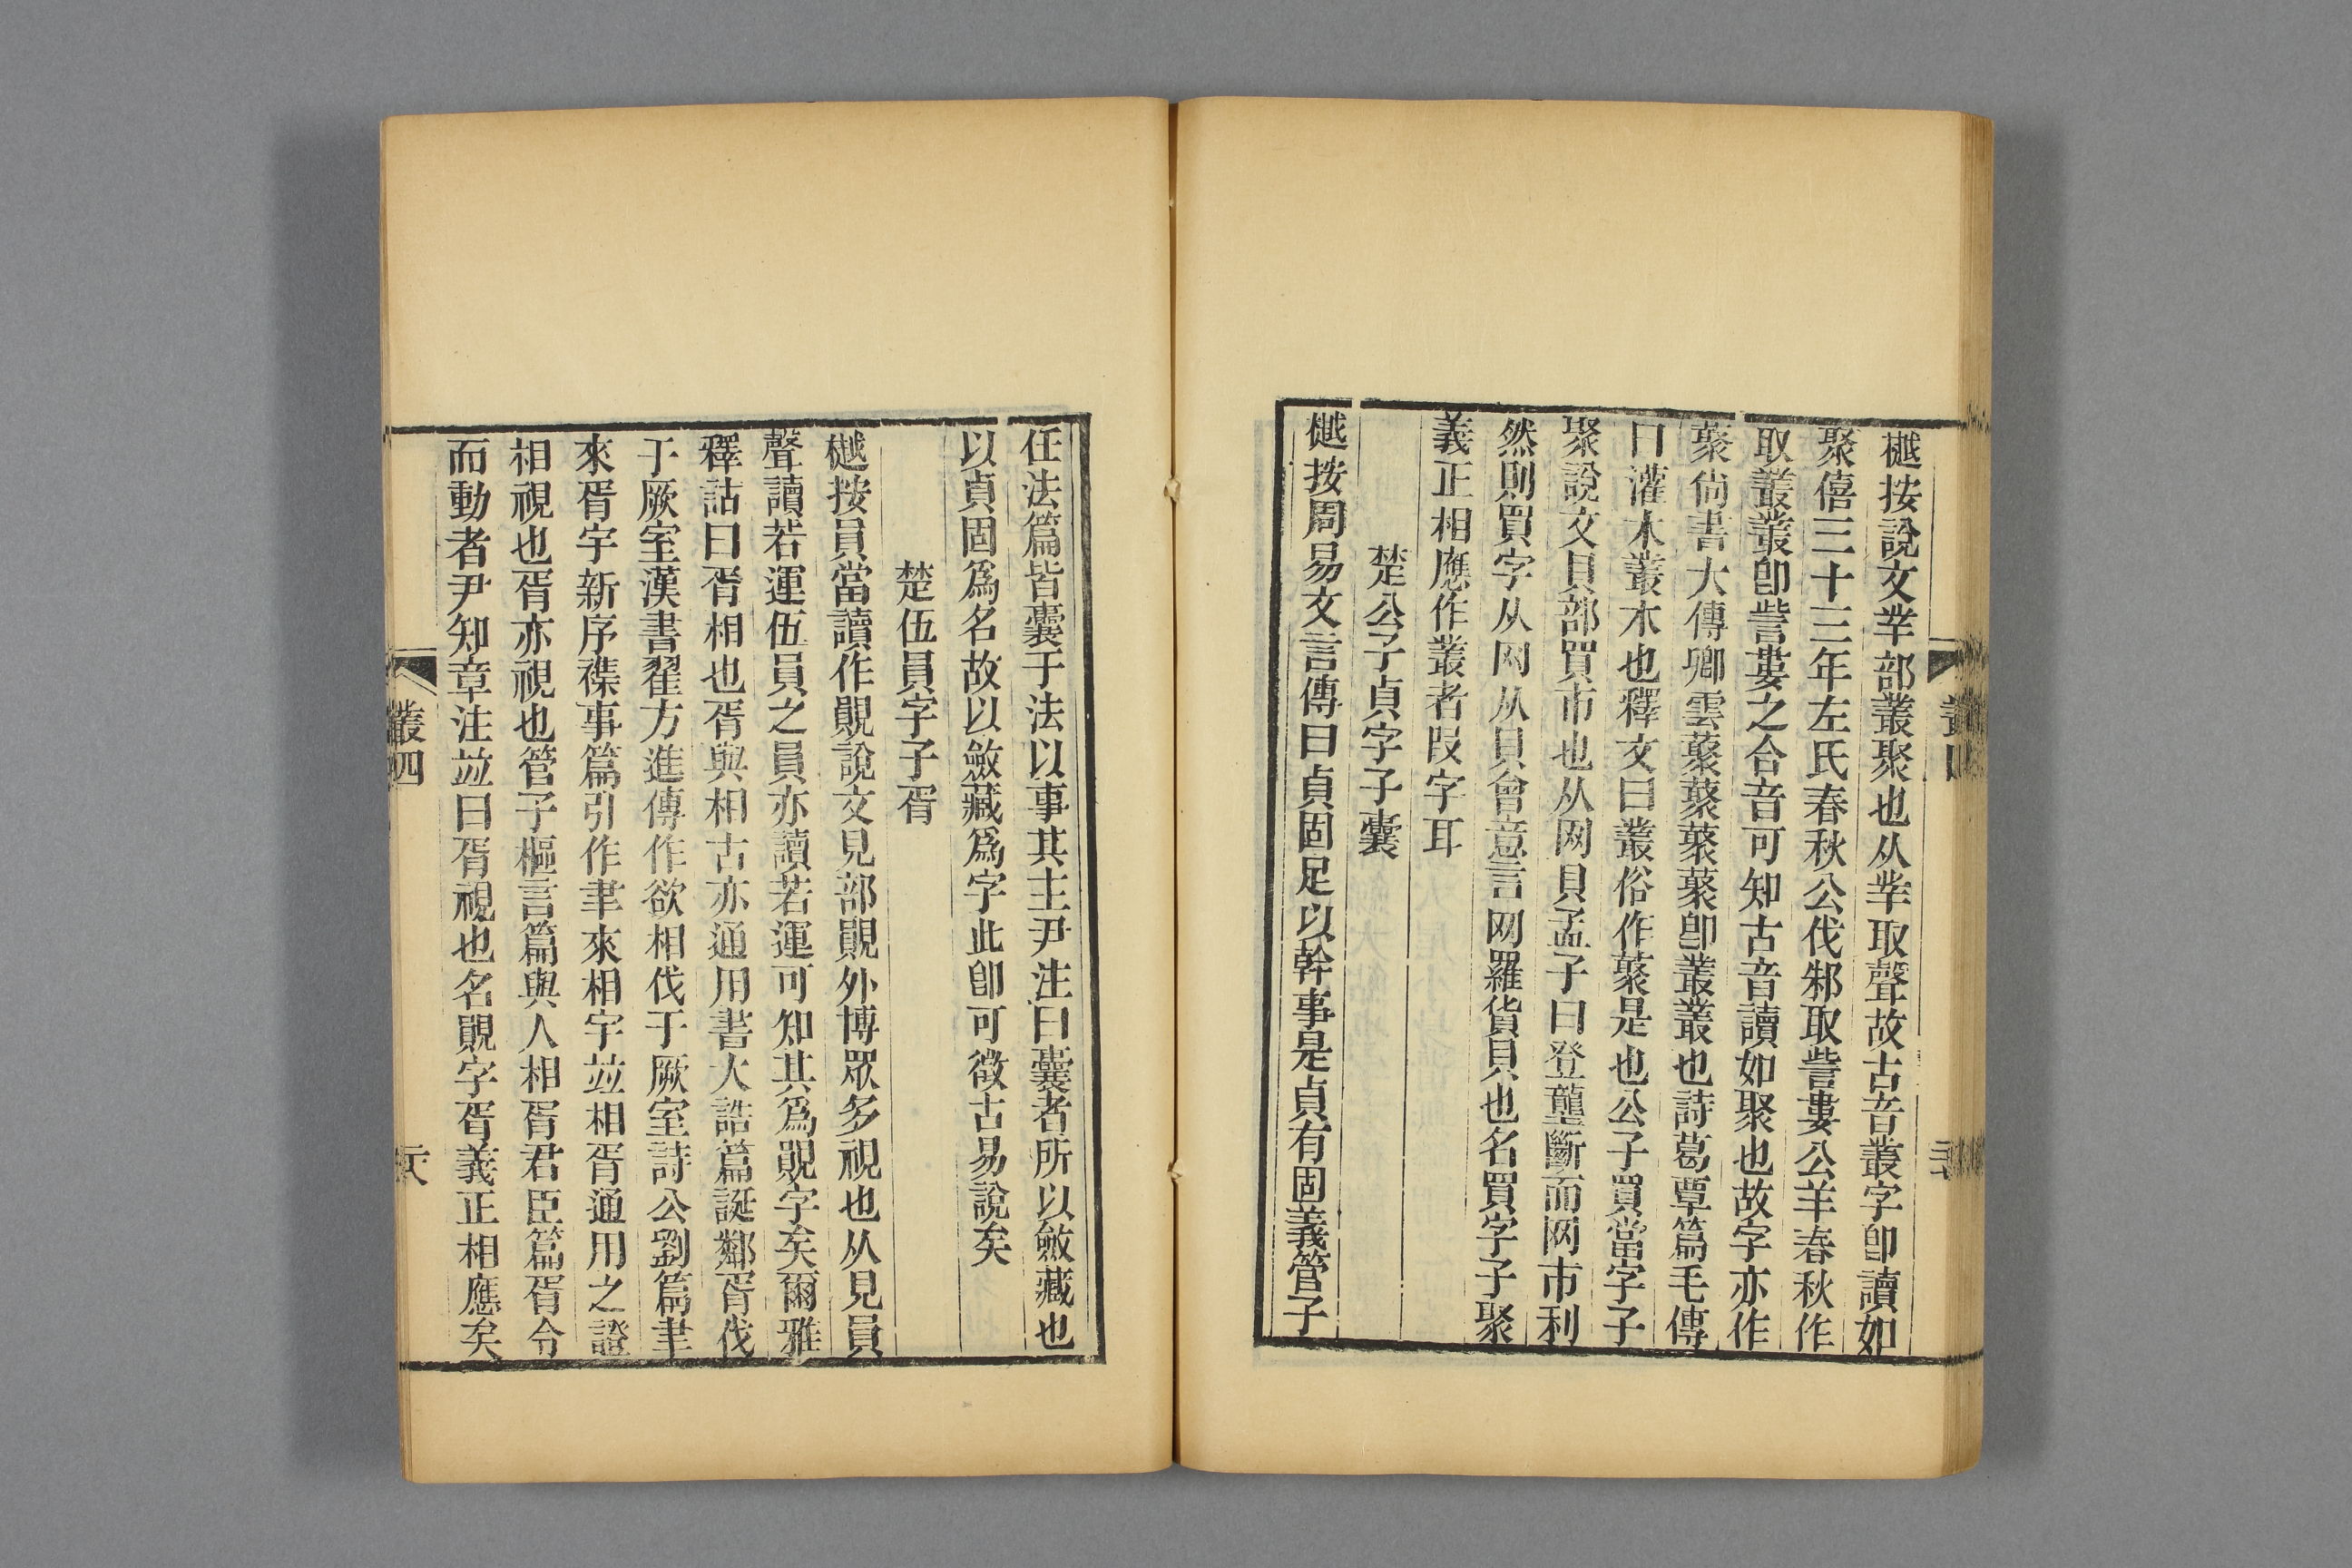 樾按說文丵部叢聚也从丵取聲故古音叢字卽讀如
聚僖三十三年左氏春秋公伐邾取訾婁公羊春秋作
取叢叢卽訾婁之合音可知古音讀如聚也故字亦作
藂尙書大傳卿雲藂藂藂藂卽叢叢也詩葛覃篇毛傳
曰灌木叢木也釋文曰叢俗作藂是也公子買當字子
聚說文貝部買市也从网貝孟子曰登壟斷而网市利
然則買字从网从貝會意言网羅貨貝也名買字子聚
義正相應作叢者叚字耳
楚公子貞字子囊
樾按周易文言傳曰貞固足以幹事是貞有固義管子
任法篇皆囊于法以事其主尹注曰囊者所以斂藏也
以貞固爲名故以斂藏爲字此卽可徵古易說矣
楚伍員字子胥
樾按員當讀作覞說文見部覞外博眾多視也从見員
聲讀若運伍員之員亦讀若運可知其爲覞字矣爾雅
釋詁曰胥相也胥與相古亦通用書大誥篇誕鄰胥伐
于厥室漢書翟方進傳作欲相伐于厥室詩公劉篇聿
來胥宇新序襍事篇引作聿來相宇竝相胥通用之證
相視也胥亦視也管子樞言篇與人相胥君臣篇胥令
而動者尹知章注竝曰胥視也名覞字胥義正相應矣
叢四